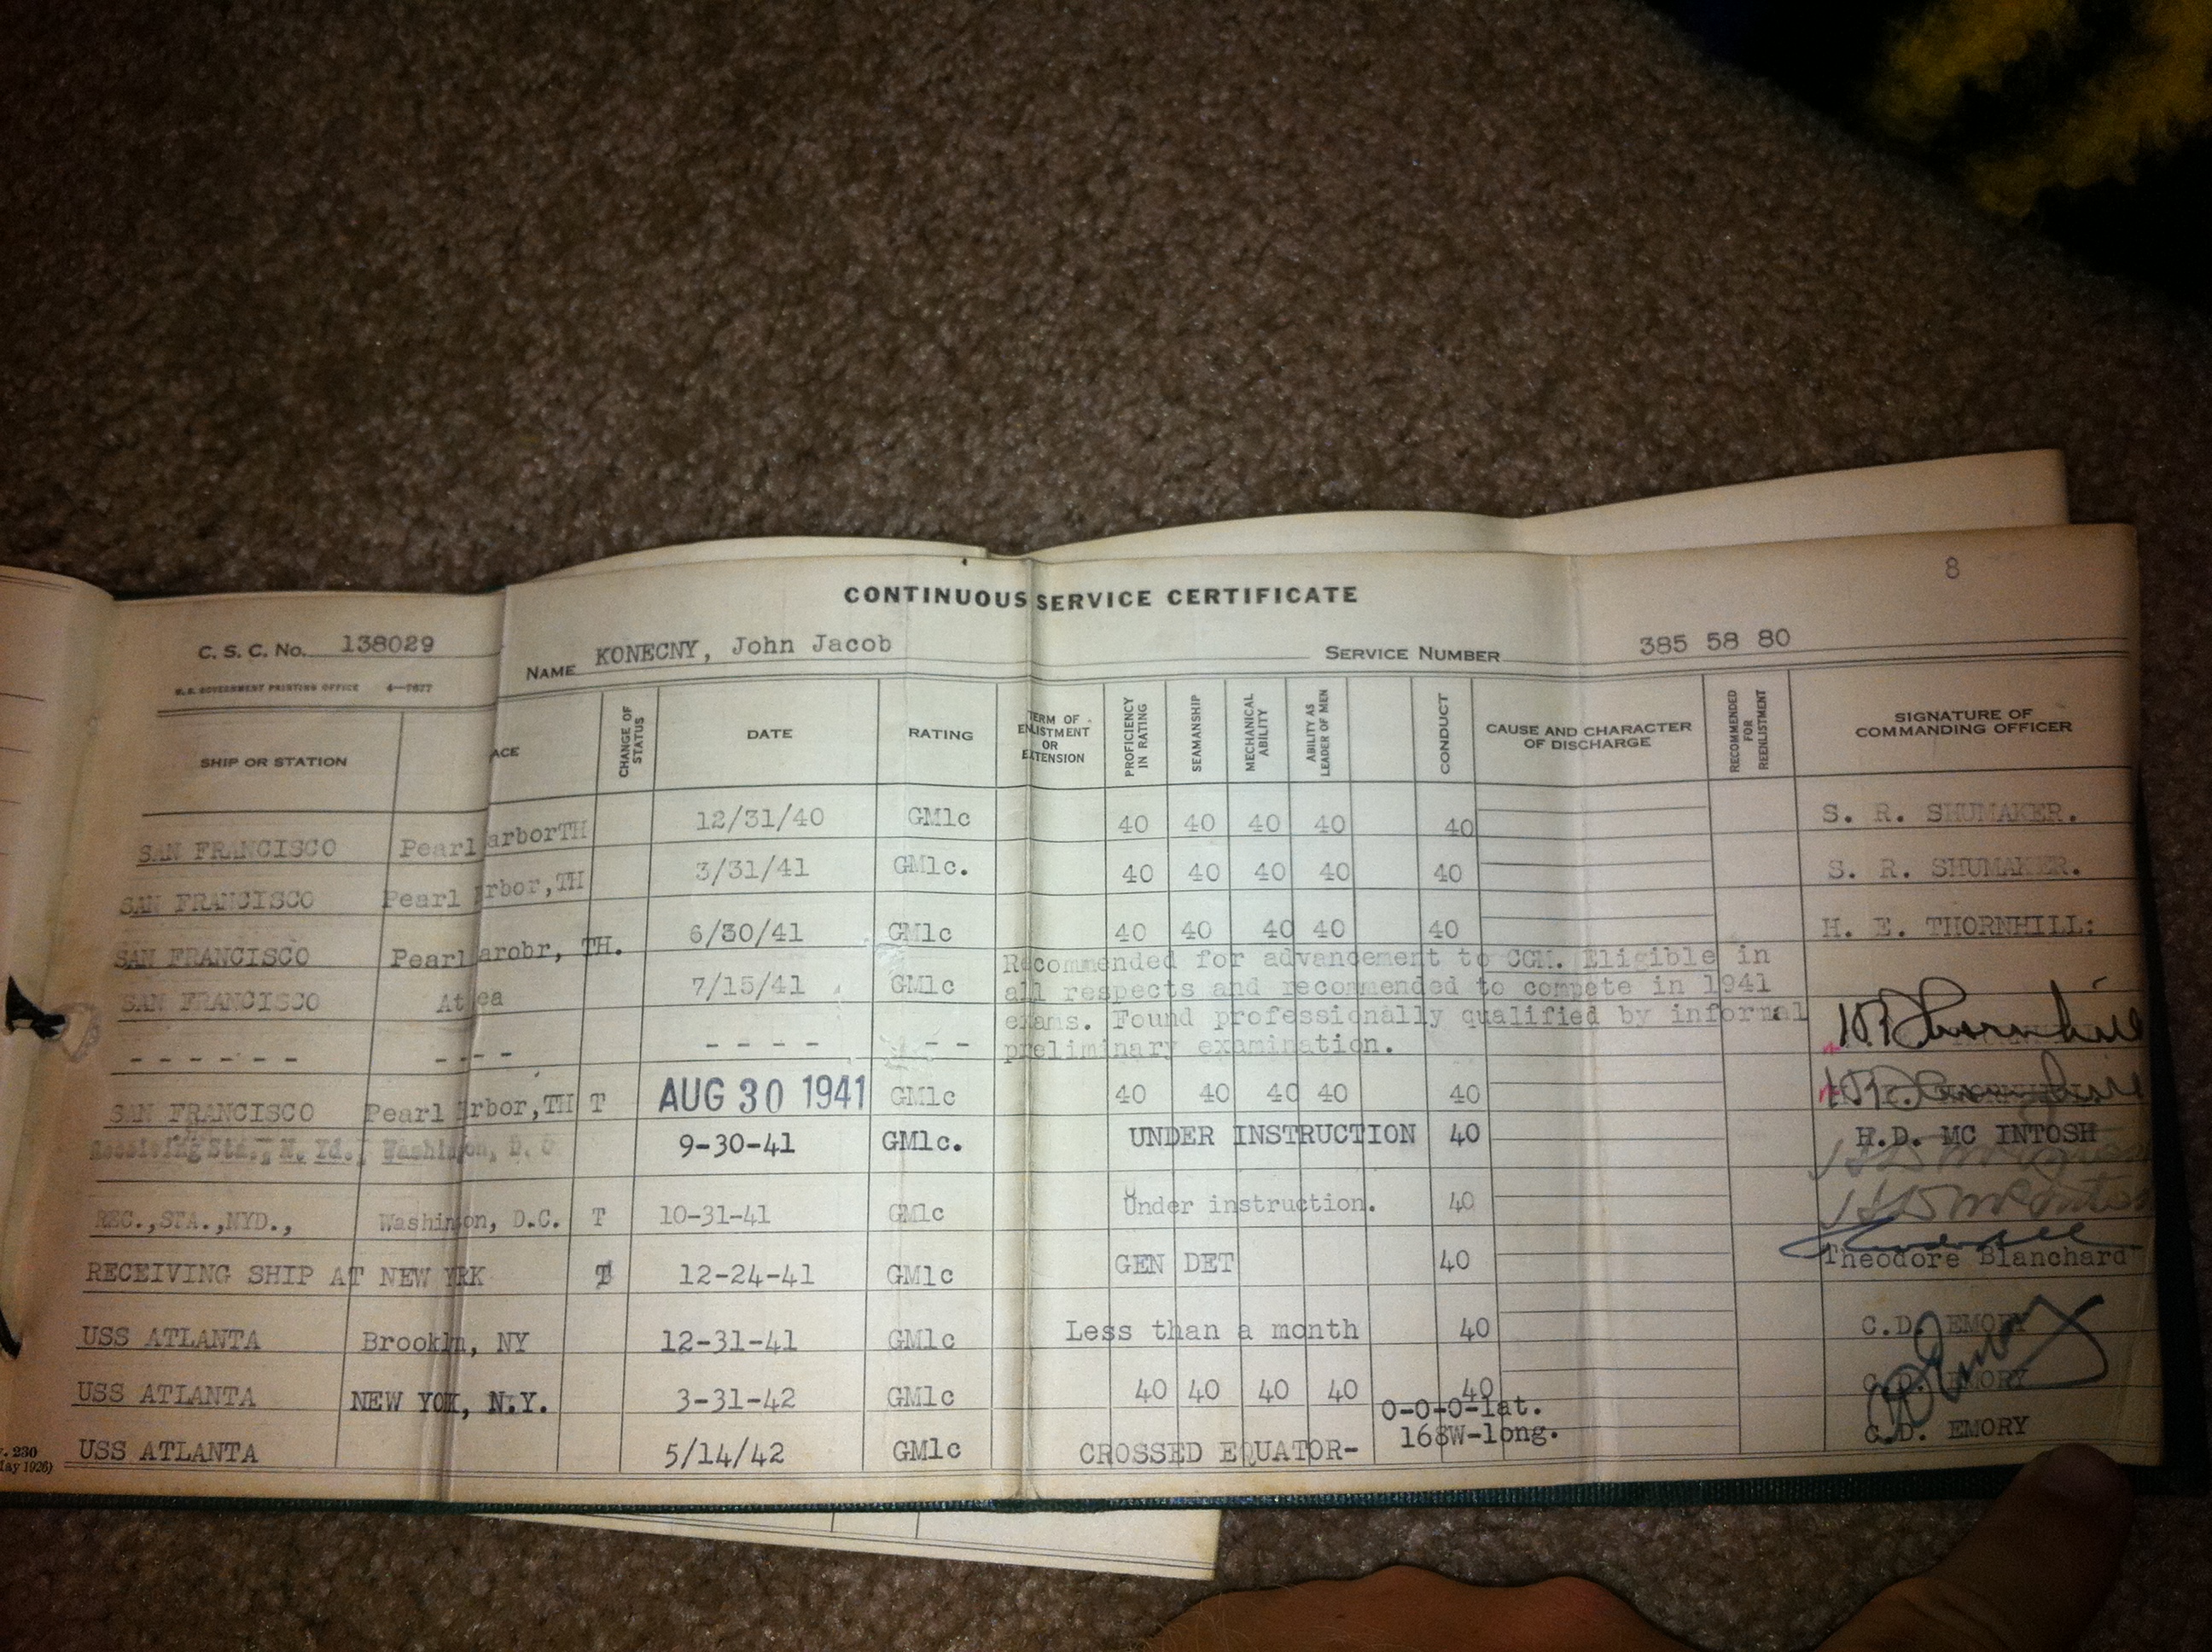 8
CONTINUOUS SERVICE CERTIFICATE
C. S. C. No. 138029 NAME KONECNY, John Jacob SERVICE NUMBER 385 58 80
U.S. GOVERNMENT PRINTING OFFICE 4—7677
SHIP OR STATION ACE CHANGE OF STATUS DATE RATING TERM OF ENLISTMENT OR EXTENSION PROFICIENCY IN RATING SEAMANSHIP MECHANICAL ABILITY ABILITY AS LEADER OF MEN CONDUCT CAUSE AND CHARACTER OF DISCHARGE RECOMMENDED FOR REENLISTMENT SIGNATURE OF COMMANDING OFFICER
SAN FRANCISCO Pearl arborTH 12/31/40 GM1c 40 40 40 40 40 S. R. SHUMAKER.
SAN FRANCISCO Pearl rbor,TH 3/31/41 GM1c. 40 40 40 40 40 S. R. SHUMAKER.
SAN FRANCISCO Pearl arobr, TH. 6/30/41 GM1c 40 40 40 40 40 H. E. THORNHILL:
SAN FRANCISCO At ea 7/15/41 GM1c Recommended for advancement to CGM. Eligible in
all respects and recommended to compete in 1941
exams. Found professionally qualified by informal
- - - - - - - - - - - - - - - - preliminary examination.
SAN FRANCISCO Pearl rbor,TH T AUG 30 1941 GM1c 40 40 40 40 40
Receiving Sta., N. Yd., Washin on, D. C 9-30-41 GM1c. UNDER INSTRUCTION 40 H.D. MC INTOSH
REC.,STA.,NYD., Washin on, D.C. T 10-31-41 GM1c Under instruction. 40
RECEIVING SHIP AT NEW YRK T 12-24-41 GM1c GEN DET 40 Theodore Blanchard
USS ATLANTA Brookln, NY 12-31-41 GM1c Less than a month 40 C.D. EMORY
USS ATLANTA NEW YOK, N.Y. 3-31-42 GM1c 40 40 40 40 40 C.D. EMORY
USS ATLANTA 5/14/42 GM1c CROSSED EQUATOR- 0-0-0-lat.
168W-long. C.D. EMORY
. 230
ay 1926)